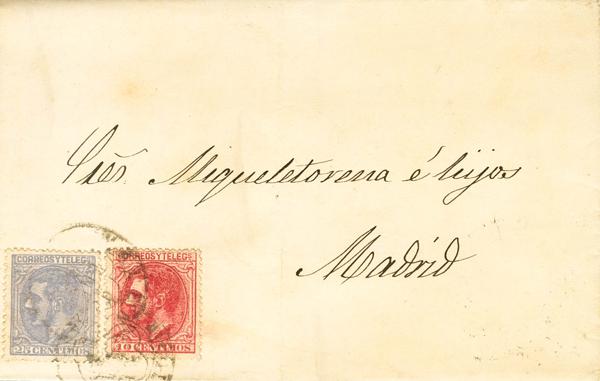 Sres Miqueletorena é hijos
Madrid
CORREOS Y TELEGS
25 CENTIMOS
CORREOS Y TELEGS
10 CENTIMOS